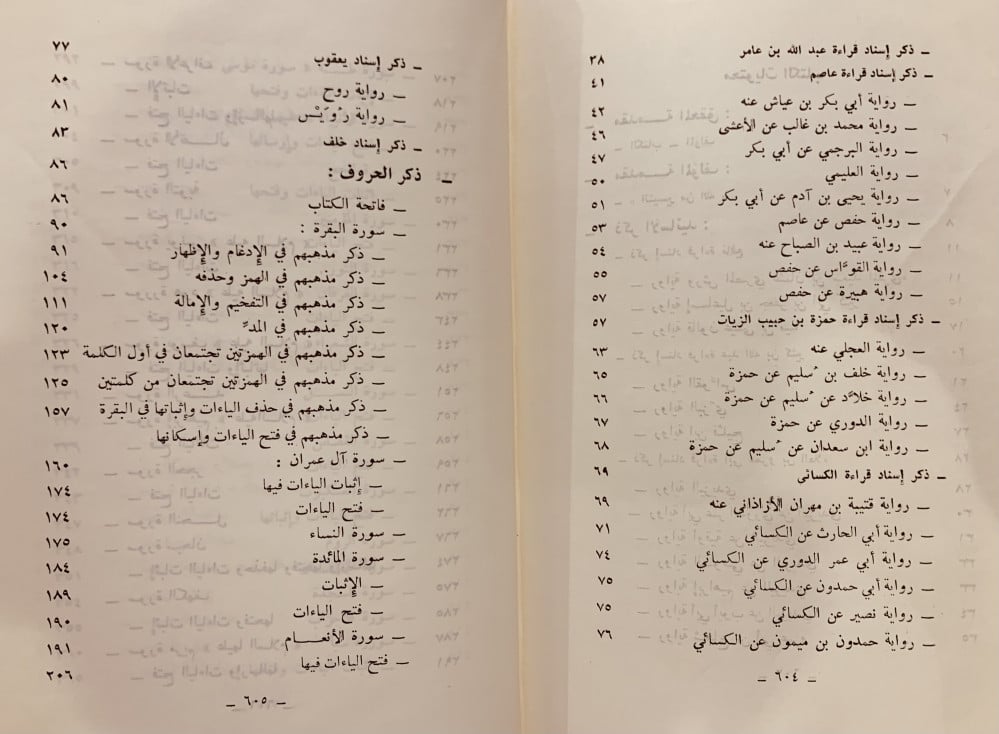 ـ ذكر إسناد قراءة عبد الله بن عامر ٣٨
ـ ذكر إسناد قراءة عاصم ٤١
ـ رواية أبي بكر بن عياش عنه ٤٢
ـ رواية محمد بن غالب عن الأعشى ٤٦
ـ رواية البرجمي عن أبي بكر ٤٧
ـ رواية العليمي ٥٠
ـ رواية يحيى بن آدم عن أبي بكر ٥١
ـ رواية حفص عن عاصم ٥٣
ـ رواية عبيد بن الصباح عنه ٥٤
ـ رواية القوَّاس عن حفص ٥٥
ـ رواية هبيرة عن حفص ٥٧
ـ ذكر إسناد قراءة حمزة بن حبيب الزيات ٥٧
ـ رواية العجلي عنه ٦٣
ـ رواية خلف بن سُليم عن حمزة ٦٥
ـ رواية خلاَّد عن سُليم عن حمزة ٦٦
ـ رواية الدوري عن حمزة ٦٧
ـ رواية ابن سعدان عن سُليم عن حمزة ٦٨
ـ ذكر إسناد قراءة الكسائى ٦٩
ـ رواية قتيبة بن مهران الأزاذاني عنه ٦٩
ـ رواية أبي الحارث عن الكسائي ٧١
ـ رواية أبي عمر الدوري عن الكسائي ٧٤
ـ رواية أبي حمدون عن الكسائي ٧٥
ـ رواية نصير عن الكسائي ٧٥
ـ رواية حمدون بن ميمون عن الكسائي ٧٦
ـ ٦٠٤ ـ
ـ ذكر إسناد يعقوب ٧٧
ـ رواية روح ٨٠
ـ رواية رُوَيْس ٨١
ـ ذكر إسناد خلف ٨٣
ـ ذكر الحروف : ٨٦
ـ فاتحة الكتاب ٨٦
ـ سورة البقرة : ٩٠
ـ ذكر مذهبهم في الإدغام والإظهار ٩١
ـ ذكر مذهبهم في الهمز وحذفه ١٠٤
ـ ذكر مذهبهم في التفخيم والإمالة ١١١
ـ ذكر مذهبهم في المدِّ ١٢٠
ـ ذكر مذهبهم في الهمزتين تجتمعان في أول الكلمة ١٢٣
ـ ذكر مذهبهم في الهمزتين تجتمعان من كلمتين ١٢٥
ـ ذكر مذهبهم في حذف الياءات وإثباتها في البقرة ١٥٧
ـ ذكر مذهبهم في فتح الياءات وإسكانها
ـ سورة آل عمران : ١٦٠
ـ إثبات الياءات فيها ١٧٤
ـ فتح الياءات ١٧٤
ـ سورة النساء ١٧٥
ـ سورة المائدة ١٨٤
ـ الإثبات ١٨٩
ـ فتح الياءات ١٩٠
ـ سورة الأنعـــام ١٩١
ـ فتح الياءات فيها ٢٠٦
ـ ٦٠٥ ـ